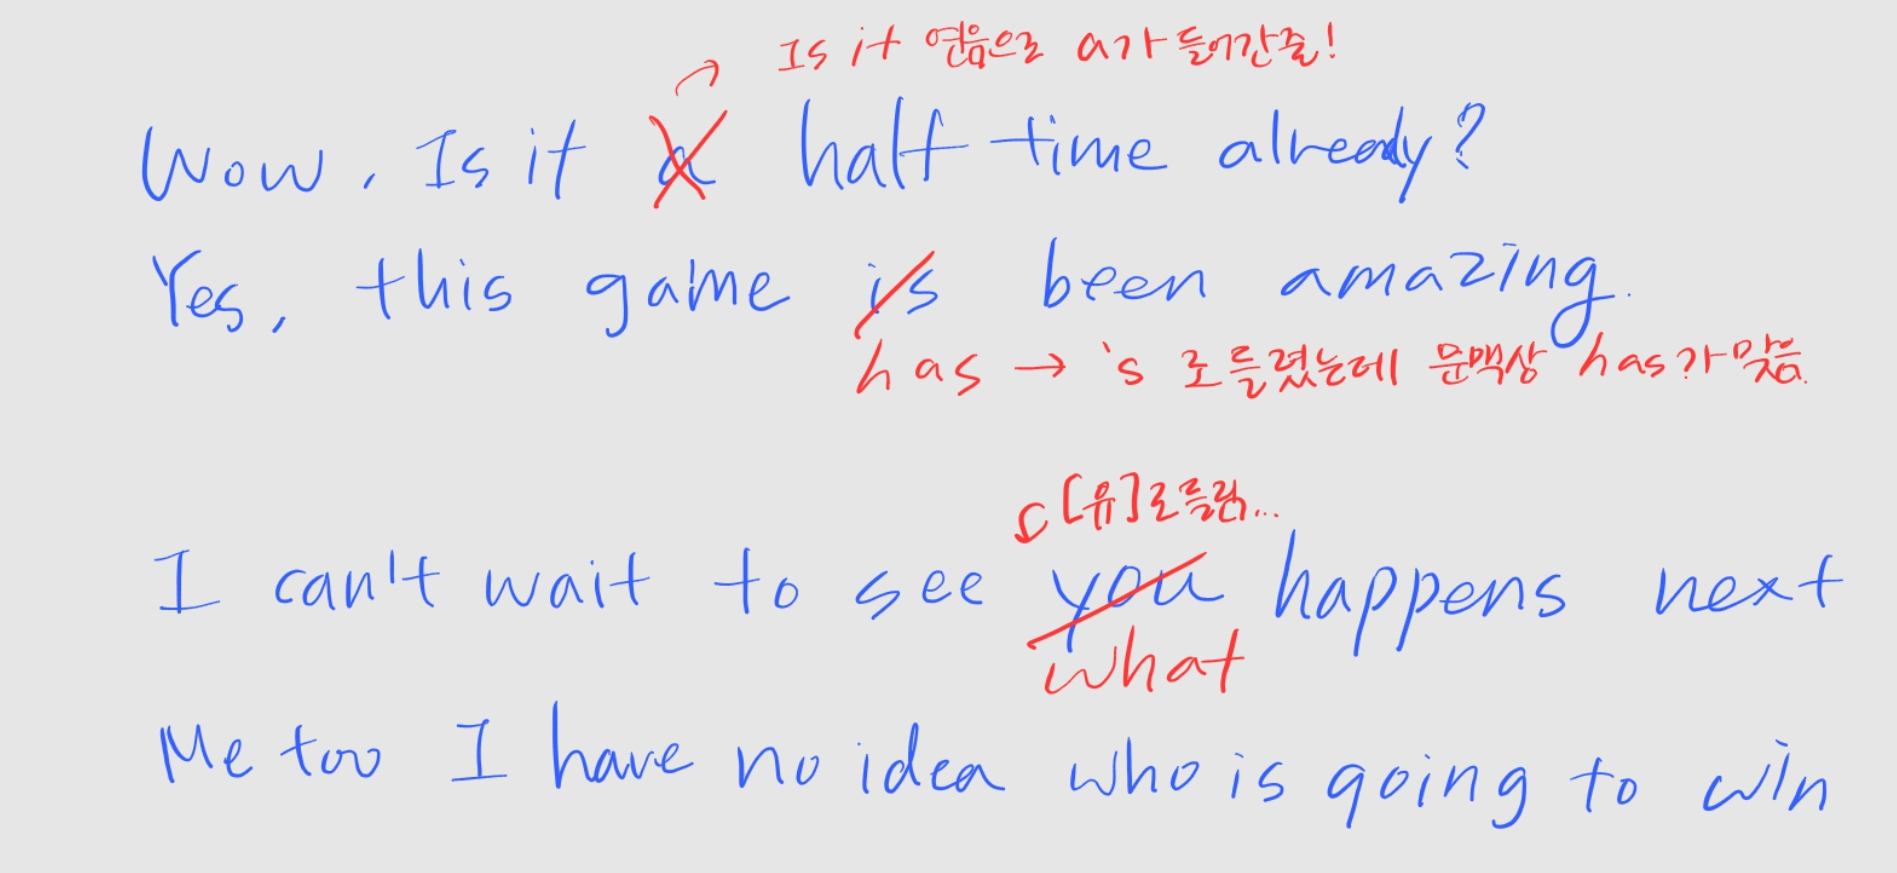 Is it 연음으로 a가 들어간줄!
Wow, Is it a half time already?
Yes, this game is been amazing.
has → 's 로 들렸는데 문맥상 has가 맞음.
[유]로 들림...
I can't wait to see you happens next
what
Me too I have no idea who is going to win